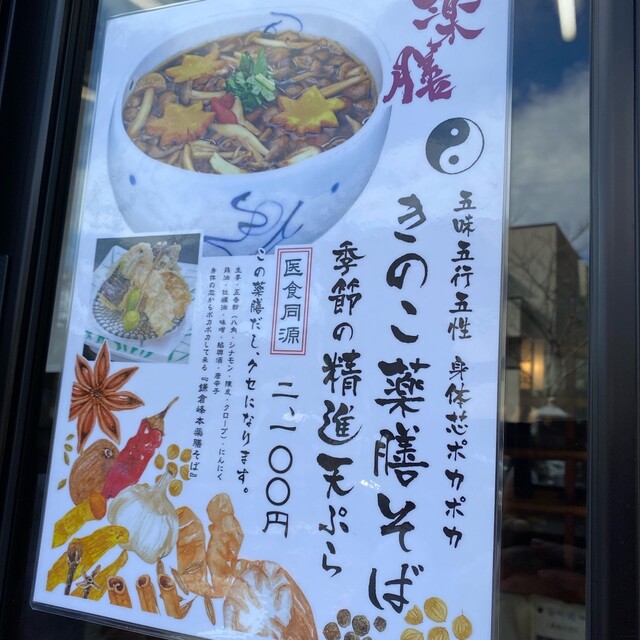 薬膳
五味五行五性 身体芯ポカポカ
きのこ薬膳そば
季節の精進天ぷら
二、一〇〇円
医食同源
この薬膳だし、クセになります。
生姜・五香粉(八角・シナモン・陳皮・クローブ)・にんにく
鶏油・胡麻油・味噌・紹興酒・唐辛子
身体の芯からポカポカして来る『鎌倉峰本薬膳そば』